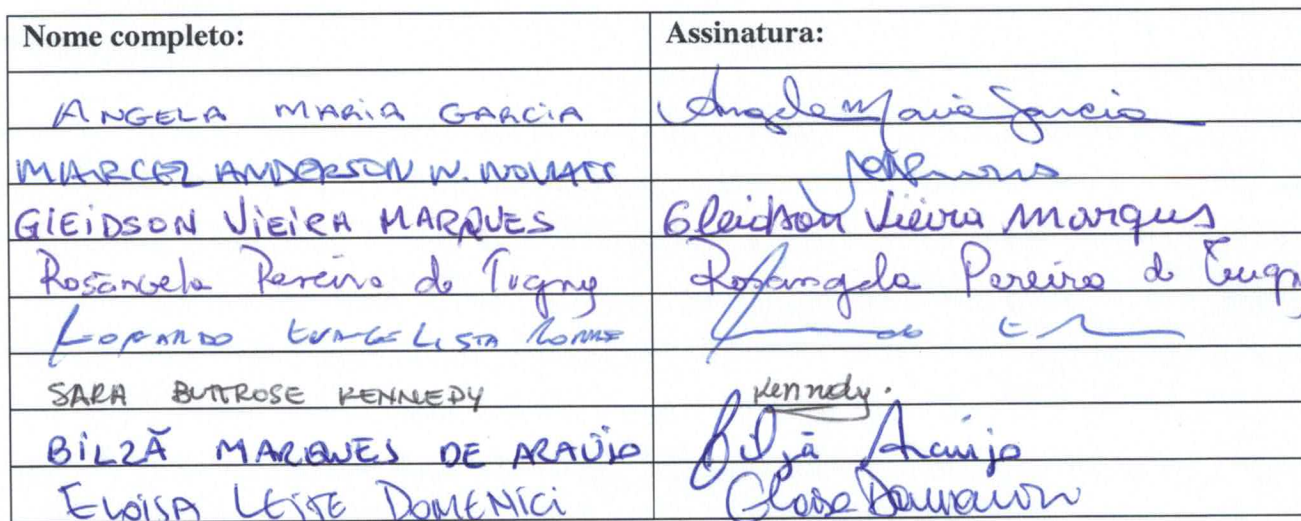 Nome completo: Assinatura:
ANGELA MARIA GARCIA Angela Maria Garcia
MARCEL ANDERSON W.
GlEiDSON ViEiRA MARQUES Gleidson Vieira Marques
Rosângela Pereira de Tugny Rosangela Pereira de Tugny
EVANGELISTA
SARA BUTTROSE KENNEDY Kennedy.
BiLZÃ MARQUES DE ARAÚJO Bilzã Araújo
ELOISA LEITE DOMENICI